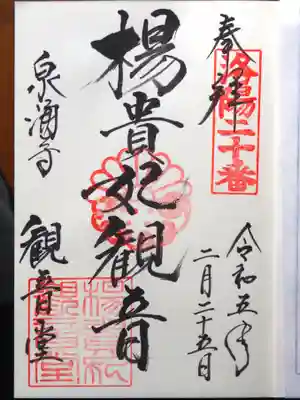 奉拝
洛陽二十番
令和五年
二月二十五日
楊貴妃観音
泉涌寺
観音堂